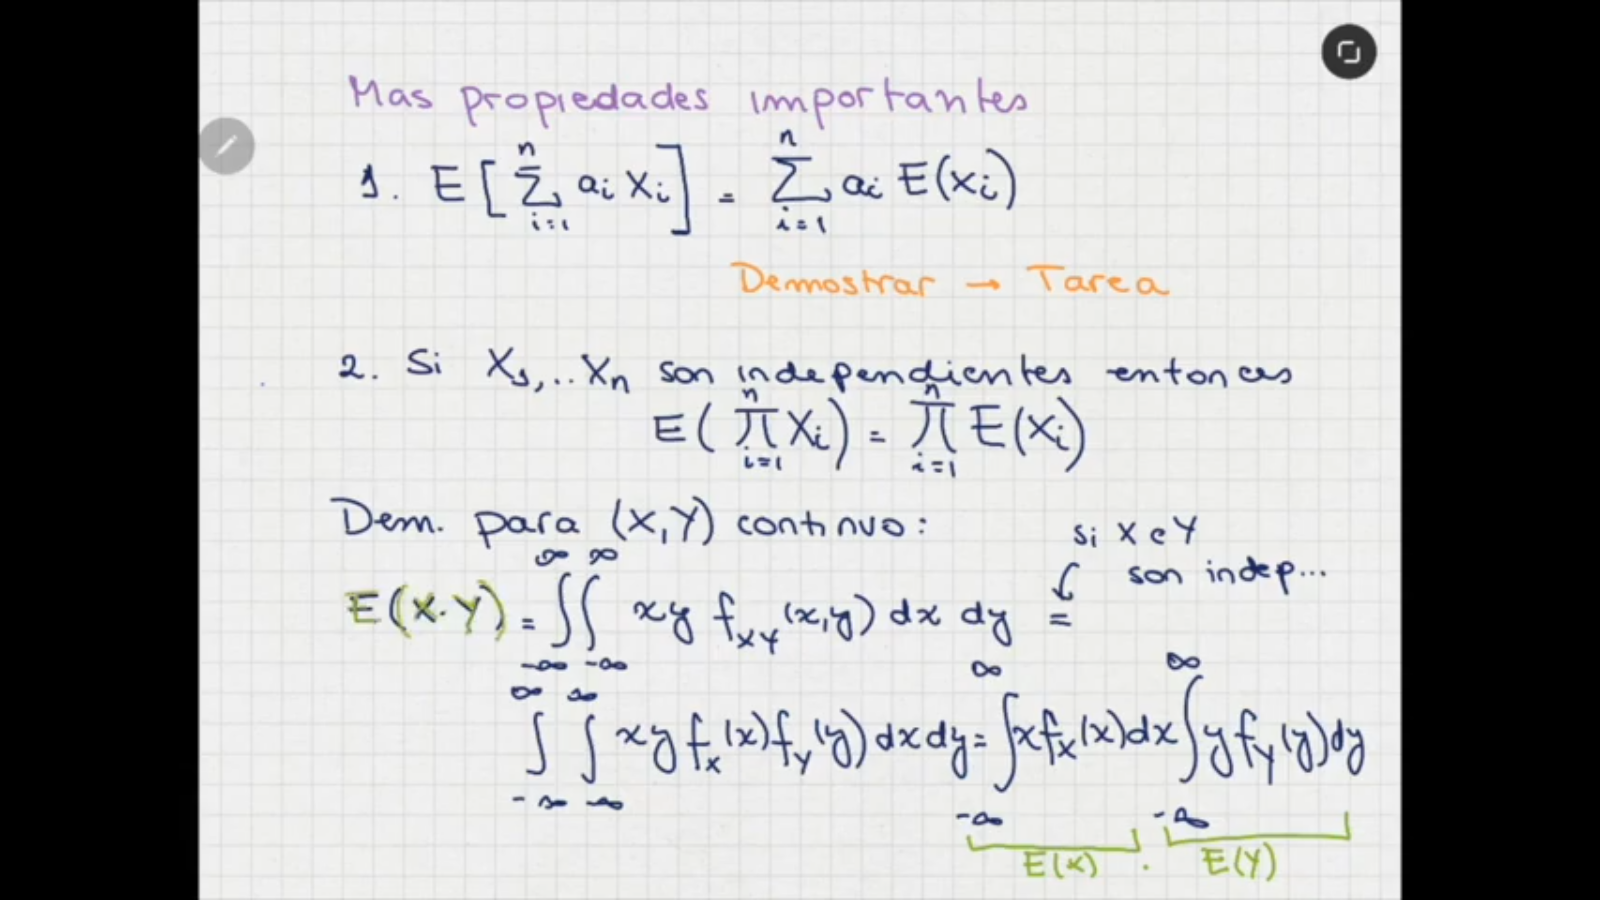 Mas propiedades importantes
1. E[∑_{i=1}^{n} ai Xi] = ∑_{i=1}^{n} ai E(Xi)
Demostrar → Tarea
2. Si X1,..Xn son independientes entonces
E(∏_{i=1}^{n} Xi) = ∏_{i=1}^{n} E(Xi)
Dem. para (X,Y) continuo:
si X e Y
son indep...
E(X·Y) = ∫_{-∞}^{∞} ∫_{-∞}^{∞} xy f_{XY}(x,y) dx dy =
∫_{-∞}^{∞} ∫_{-∞}^{∞} xy f_X(x) f_Y(y) dx dy = ∫_{-∞}^{∞} x f_X(x) dx ∫_{-∞}^{∞} y f_Y(y) dy
E(X) · E(Y)